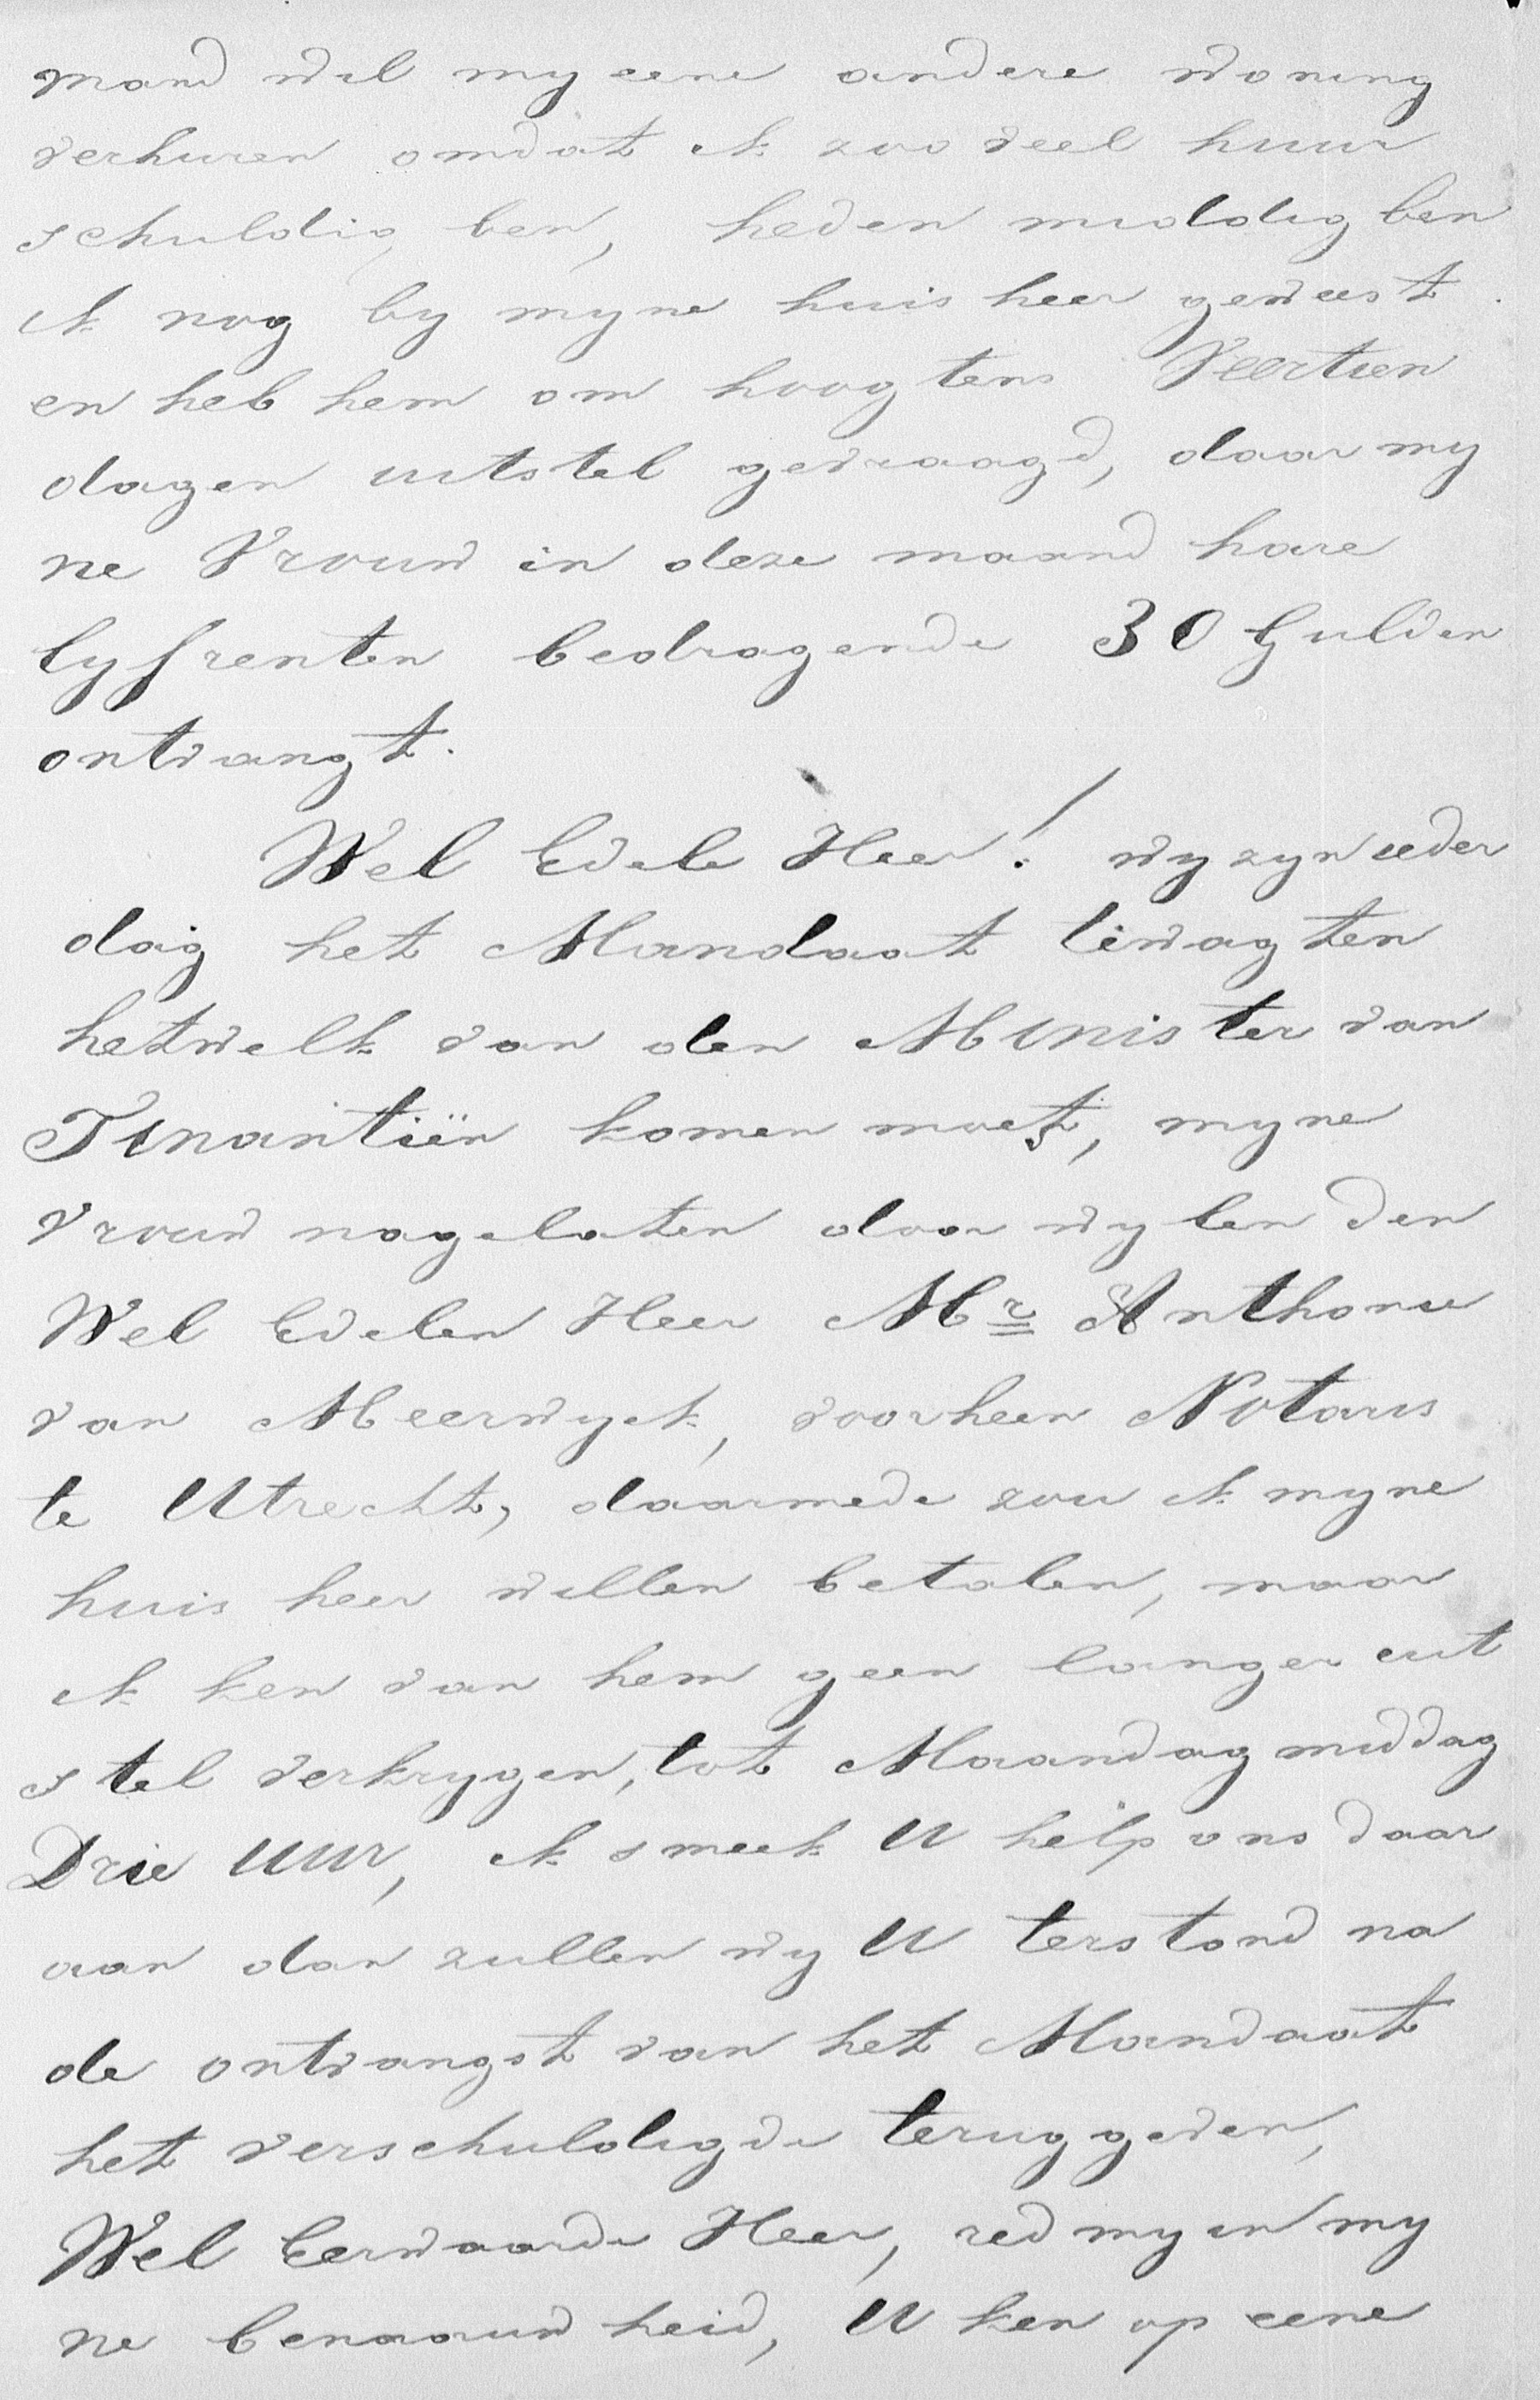 mand wil my eene andere woning
verhuren omdat ik zoo veel huur
schuldig ben, heden middag ben
ik nog by myne huis heer geweest
en heb hem om hoogtens Veertien
dagen uitstel gevraagd, daar my
ne Vrouw in deze maand hare
lyfrenten bedragende 30 Gulden
ontvangt.
Wel Edele Heer! wy zyn ieder
dag het Mandaat tewagten
hetwelk van den Minister van
Finantiën komen moet, myne
vrouw nagelaten door wylen den
Wel Edelen Heer Mr Anthonie
van Meerwyck, voorheen Notaris
te Utrecht, daarmede zou ik myne
huis heer willen betalen, maar
ik ken van hem geen langer uit
stel verkrygen, tot Maandag middag
Drie uur, ik smeek U help ons daar
aan dan zullen wy U terstond na
de ontvangst van het Mandaat
het verschuldigde terug geven,
Wel Eerwaarde Heer, red my en my
ne benaauwdheid, U ken op eene